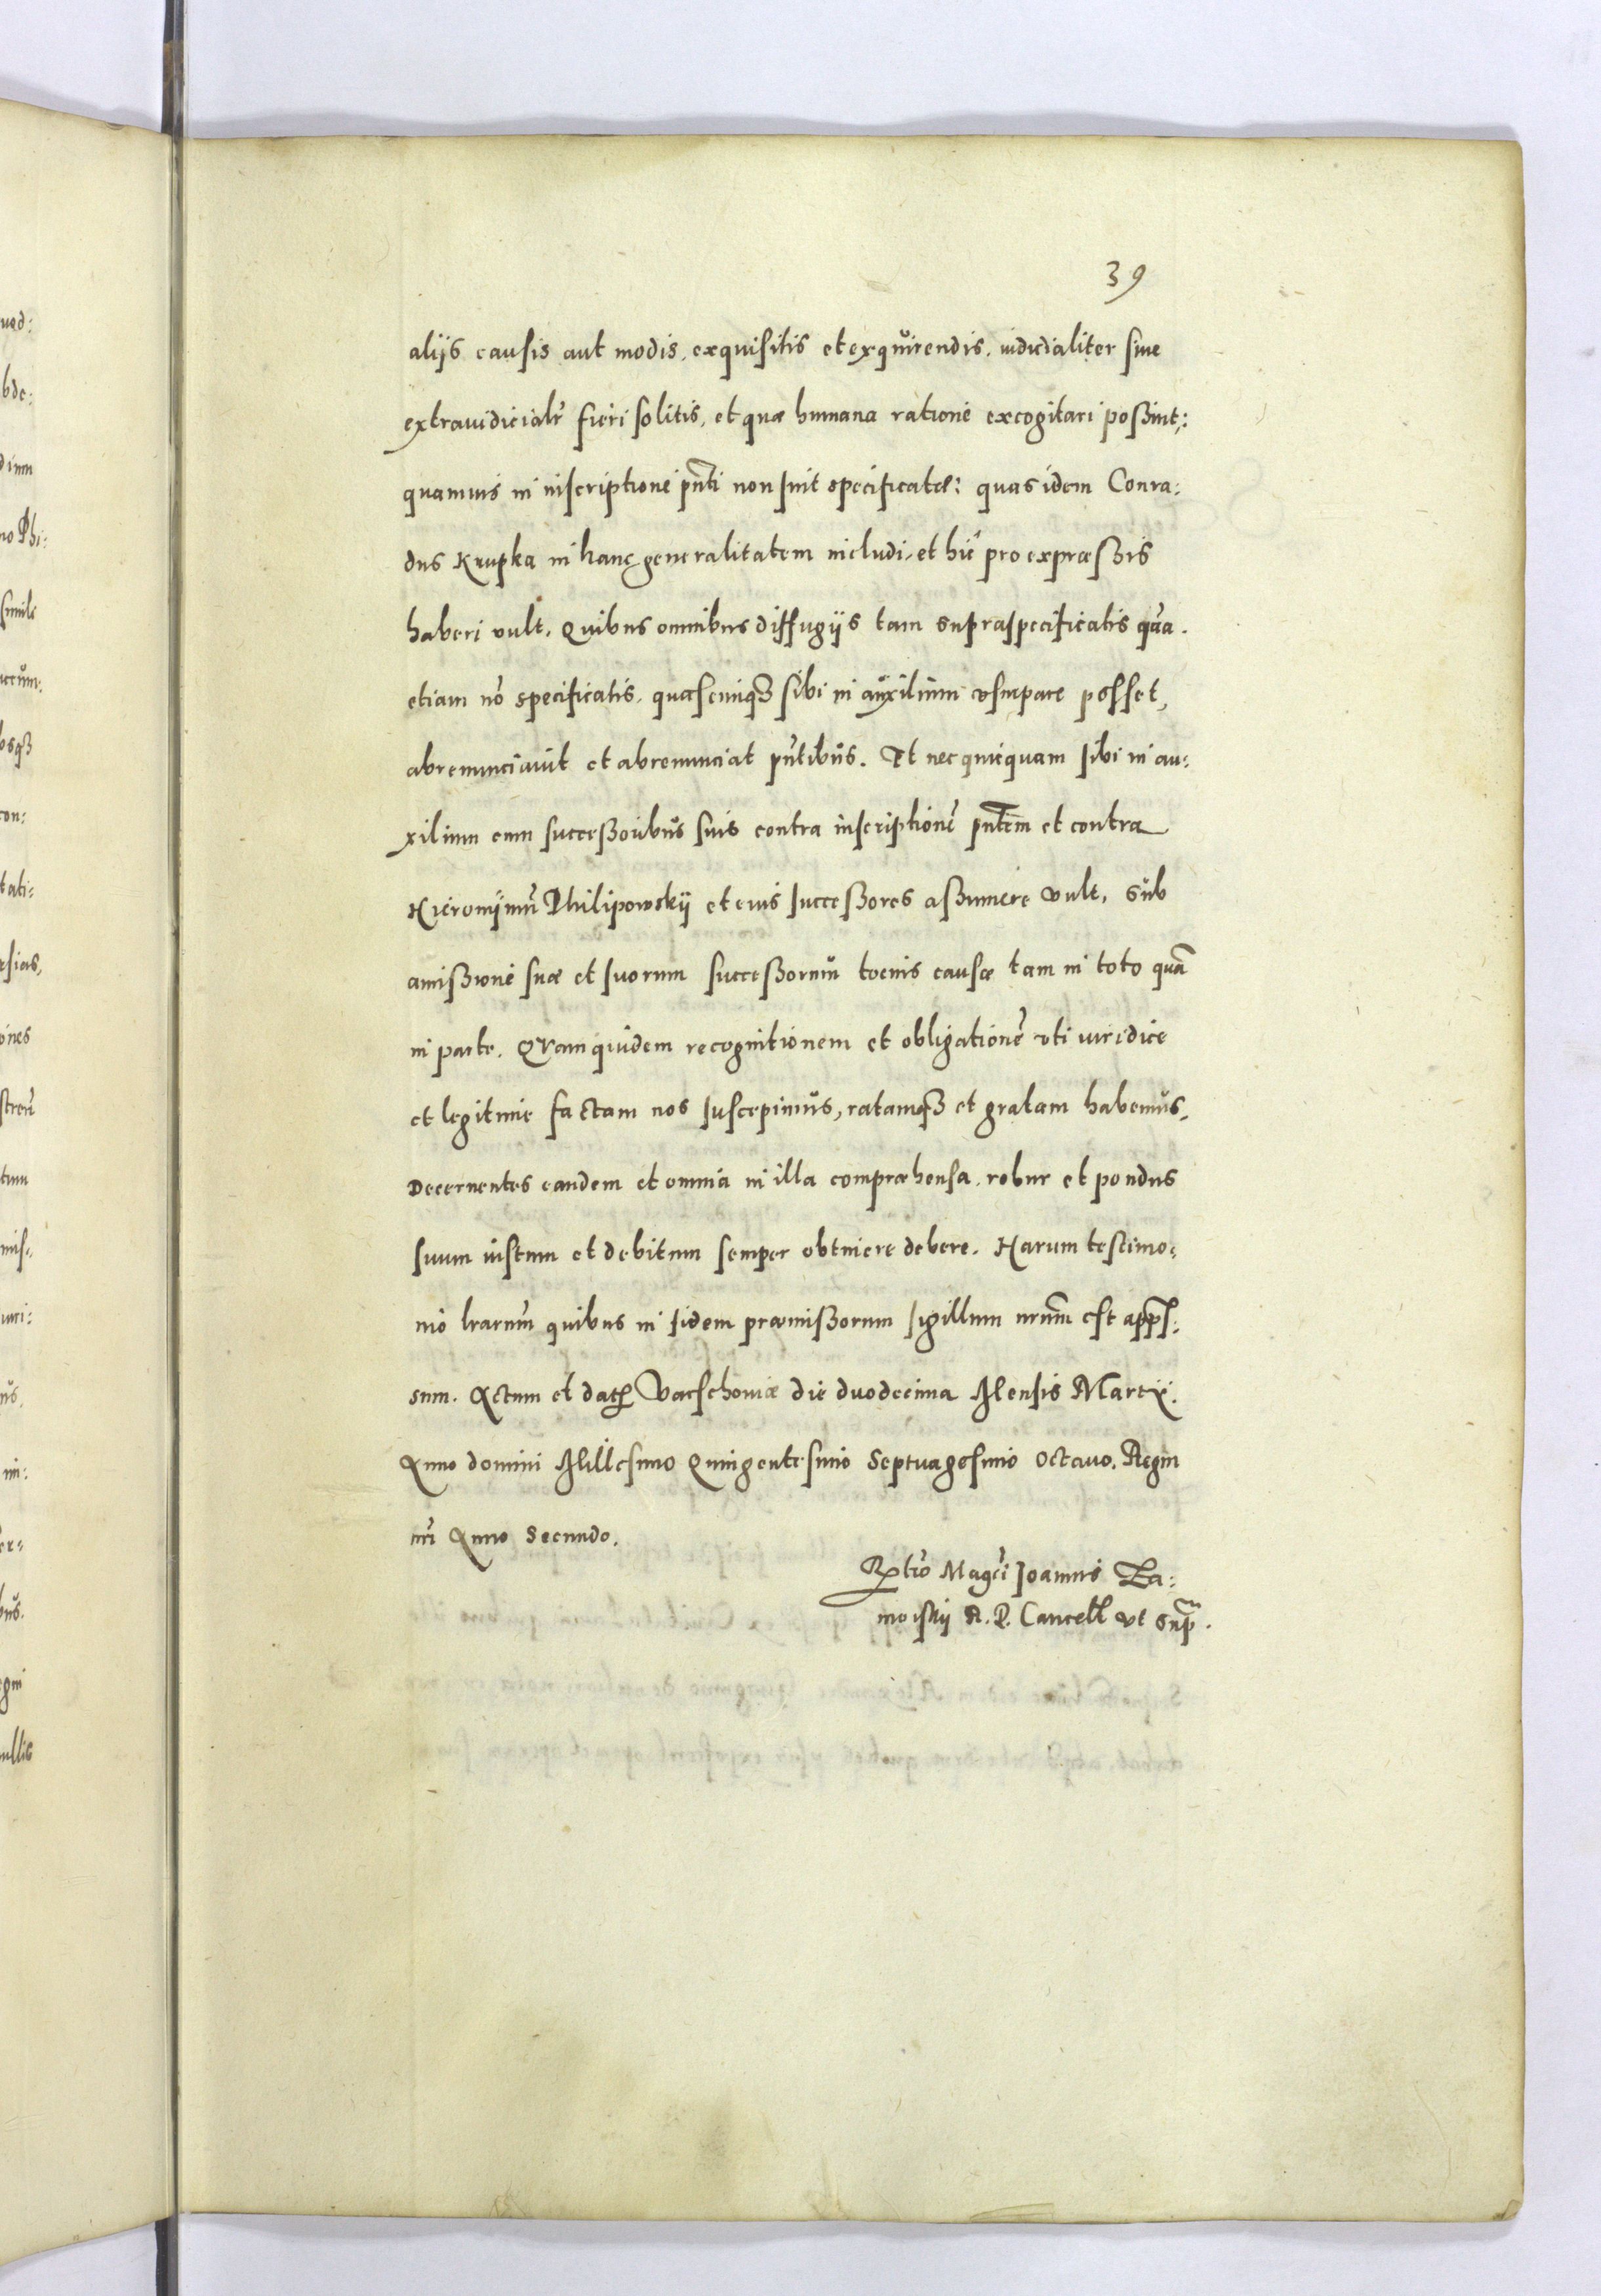 39
alijs causis aut modis, exquisitis et exquirendis, iudicialiter siue
extraiudicialr̃ fieri solitis, et quæ humana ratione excogitari possint:
quamuis in inscriptione pñti non sint specificatæ: quas idem Conra:
dus Krupka in hanc generalitatem includi, et hic pro expræssis
haberi vult. Quibus omnibus diffugijs tam supraspecificatis quã
etiam nõ specificatis, quæcunqȝ sibi in auxilium vsurpare posset,
abrenunciauit et abrenunciat pñtibus. Et nec quicquam sibi in au:
xilium cum successoribus suis contra inscriptionẽ pñtem et contra
Hieronijmũ Philipowskij et eius successores assumere vult, sub
amissione suæ et suorum successorum toenis causæ tam in toto quã
in parte. Quam quidem recognitionem et obligationẽ vti iuridice
et legitime factam nos suscepimus, ratamqȝ et gratam habemus,
Decernentes eandem et omnia in illa compræhensa, robur et pondus
suum iustum et debitum semper obtinere debere. Harum testimo:
nio lrarum̃ quibus in fidem præmissorum sigillum nrũm est appṣ:
sum. Actum et datũ Varschouiæ die duodecima Mensis Martij.
Anno domini Millesimo Quingentesimo Septuagesimo Octauo. Regni
nr̃i Anno Secundo.
Rӕltio Magci Joannis Za:
moiskij R. P. Cancell vt supr̃.